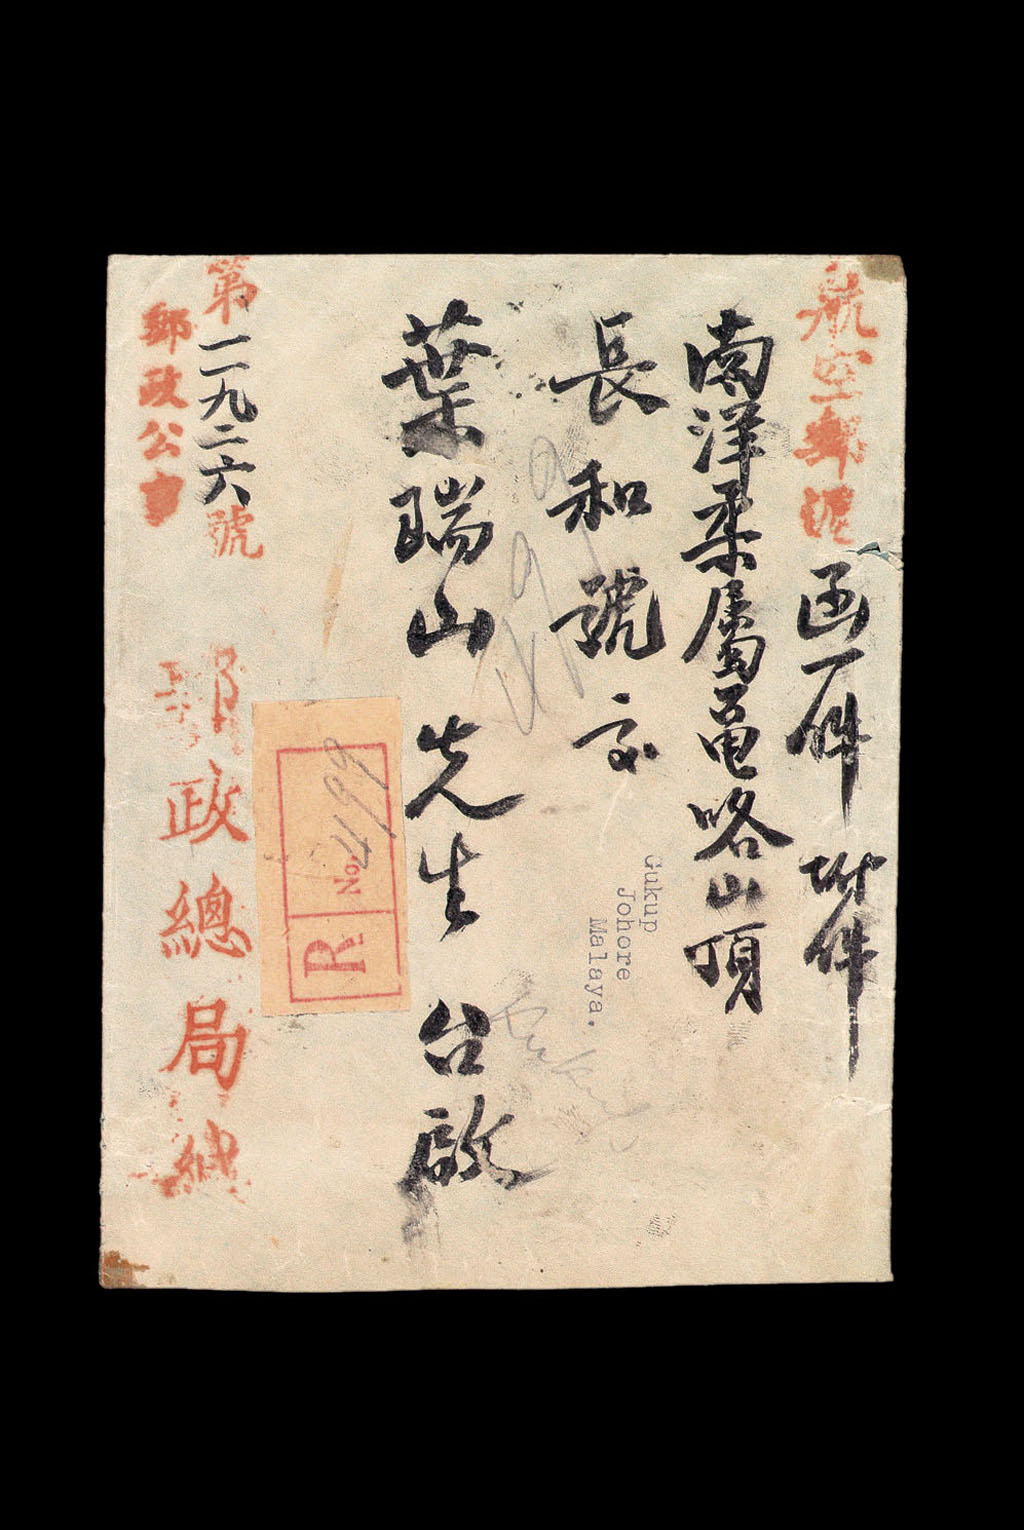 航空郵遞 函一件 附件
南洋柔屬龜咯山頂
長和號交
葉瑞山先生台啟
第一一九二六號
郵政公事
郵政總局緘
Gukup
Johore
Malaya.
R No. 4799